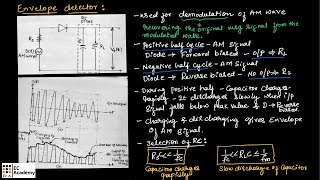 Envelope detector:
- used for demodulation of AM wave
Recovering the original msg signal from the
modulated wave.
- Positive half cycle - AM signal
Diode → Forward biased - O/P → RL
- Negative half cycle - AM signal
Diode → Reverse biased - No O/P → RL
- During positive half - Capacitor charges
rapidly - It discharges slowly when i/p
signal falls below peak value & D → Reverse
biased
- Charging & discharging gives Envelope
Of AM signal.
- Selection of RC:
Capacitor charges
rapidly
Slow discharge of Capacitor
EC
Academy